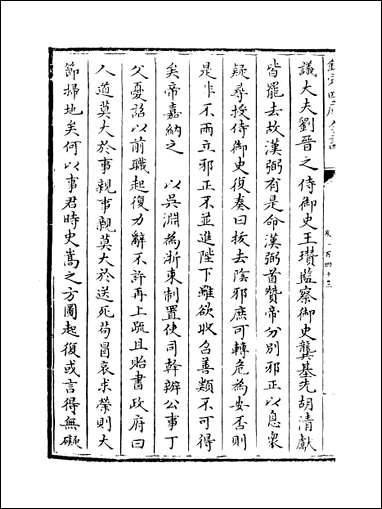 欽定四庫全書
卷一百四十三
議大夫劉晉之侍御史王瓚監察御史龔基先胡清獻
皆罷去故漢弼有是命漢弼首贊帝分別邪正以息衆
疑尋授侍御史復奏曰拔去陰邪庶可轉危為安否則
是非不兩立邪正不並進陛下雖欲收召善類不可得
矣帝嘉納之 以吳淵為浙東制置使司幹辦公事丁
父憂詔以前職起復力辭不許再上疏且貽書政府曰
人道莫大於事親事親莫大於送死苟冒哀求榮則大
節掃地矣何以事君時史嵩之方圖起復或言得無礙